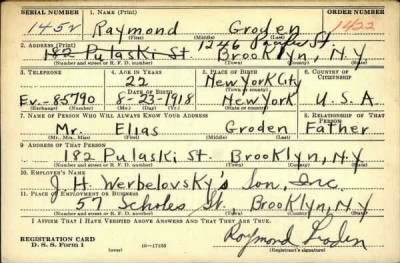 SERIAL NUMBER 1. NAME (Print) ORDER NUMBER
1452 Raymond Groden 1422
(First) (Middle) (Last)
2. ADDRESS (Print) 1246 St
182 Pulaski St. Brooklyn, N.Y
(Number and street or R. F. D. number) (Town) (County) (State)
3. TELEPHONE 4. AGE IN YEARS 5. PLACE OF BIRTH 6. COUNTRY OF CITIZENSHIP
22 New York City
DATE OF BIRTH (Town or county)
Ev.-85790 8-23-1918 New York U.S.A
(Exchange) (Number) (Mo.) (Day) (Yr.) (State or country)
7. NAME OF PERSON WHO WILL ALWAYS KNOW YOUR ADDRESS 8. RELATIONSHIP OF THAT PERSON
Mr. Elias Groden Father
(Mr., Mrs., Miss) (First) (Middle) (Last)
9. ADDRESS OF THAT PERSON
182 Pulaski St. Brooklyn, N.Y
(Number and street or R. F. D. number) (Town) (County) (State)
10. EMPLOYER'S NAME
J. H. Werbelovsky's Son, Inc.
11. PLACE OF EMPLOYMENT OR BUSINESS
57 Scholes St. Brooklyn, N.Y
(Number and street or R. F. D. number) (Town) (County) (State)
I AFFIRM THAT I HAVE VERIFIED ABOVE ANSWERS AND THAT THEY ARE TRUE.
REGISTRATION CARD
D. S. S. Form 1 (over) 16-17105 Raymond Groden
(Registrant's signature)